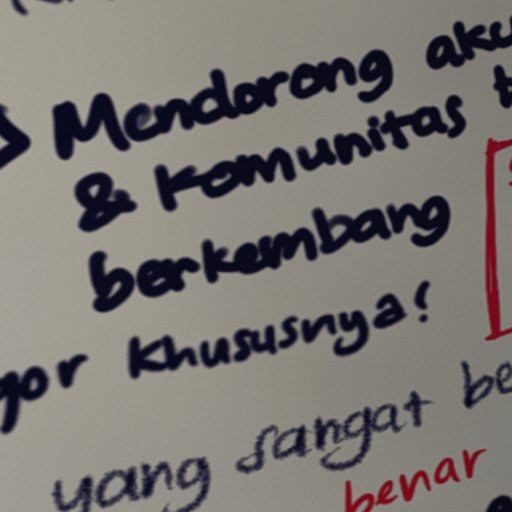 Mendorong aku
& Komunitas
berkembang
gor khususnya!
yang sangat be
benar